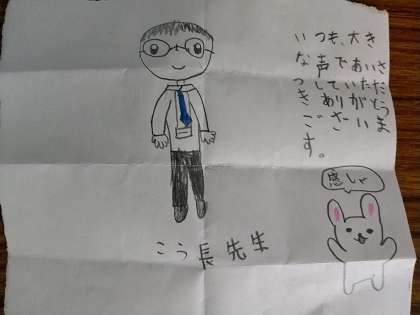 いつも、大き
な声であいさ
つしていただ
きありがとう
ございま
す。
感しゃ
こう長先生